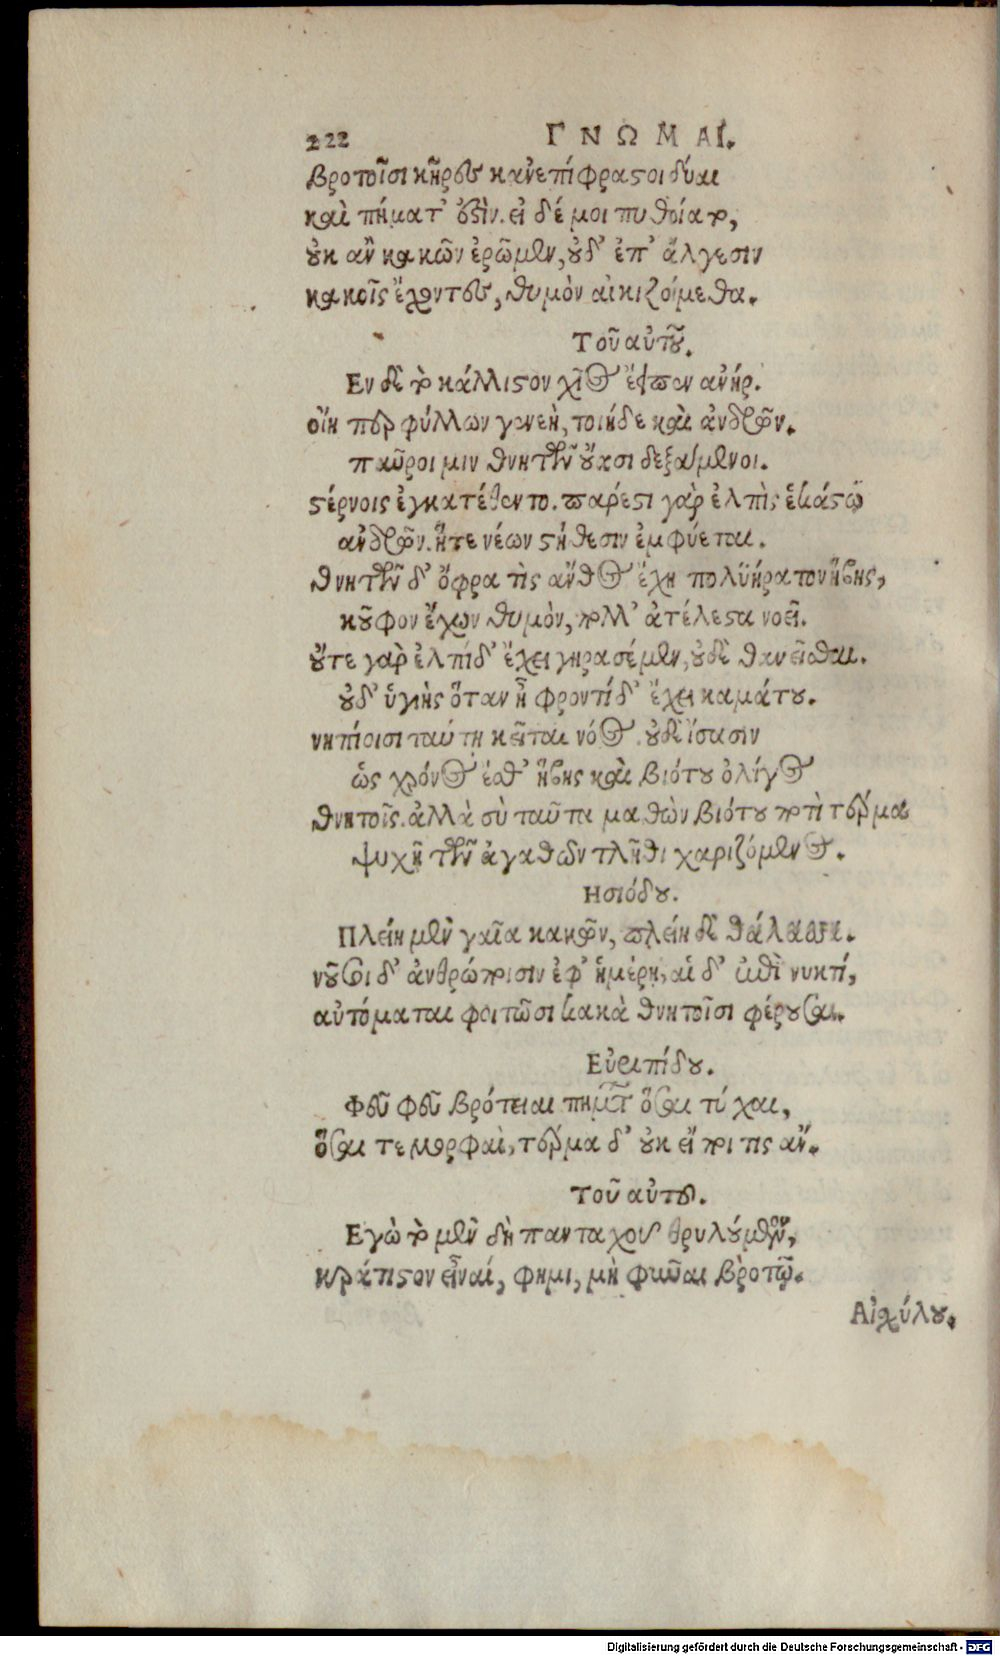 222 ΓΝΩΜΑΙ.
βροτοῖσι κῆρες κἀνεπίφραστοι δύαι
καὶ πήματ' ἐστίν. εἰ δέ μοι πυθοίατο,
οὐκ ἂν κακῶν ἐρῶμεν, οὐδ' ἐπ' ἄλγεσιν
κακοῖς ἔχοντες, θυμὸν αἰκιζοίμεθα.
Τοῦ αὐτοῦ.
Εν δὲ τὸ κάλλιστον χῖος ἔειπεν ἀνήρ.
οἵη περ φύλλων γενεὴ, τοιήδε καὶ ἀνδρῶν.
παῦροι μιν θνητῶν οὔασι δεξάμενοι.
στέρνοις ἐγκατέθεντο. πάρεστι γὰρ ἐλπὶς ἑκάστῳ
ἀνδρῶν. ἥτε νέων στήθεσιν ἐμφύεται.
θνητῶν δ' ὄφρα τὶς ἄνθος ἔχῃ πολυήρατον ἥβης,
κοῦφον ἔχων θυμὸν, πολλ' ἀτέλεστα νοεῖ.
οὔτε γὰρ ἐλπίδ' ἔχει γηρασέμεν, οὐδὲ θανεῖσθαι.
οὐδ' ὑγιὴς ὅταν ᾖ φροντίδ' ἔχει καμάτου.
νηπίοισι ταύτῃ κεῖται νόος. οὐδὲ ἴσασιν
ὡς χρόνος ἔσθ' ἥβης καὶ βιότου ὀλίγος
θνητοῖς. ἀλλὰ σὺ ταῦτα μαθὼν βιότου ποτὶ τέρμα
ψυχῇ τῶν ἀγαθῶν τλῆθι χαριζόμενος.
Ησιόδου.
Πλείη μὲν γαῖα κακῶν, πλείη δὲ θάλασσα.
νοῦσοι δ' ἀνθρώποισιν ἐφ' ἡμέρῃ, αἱ δ' ἐπὶ νυκτί,
αὐτόμαται φοιτῶσι κακὰ θνητοῖσι φέρουσαι.
Εὐριπίδου.
Φεῦ φεῦ βρότειαι πημάτων ὅσαι τύχαι,
ὅσαι τε μορφαὶ, τέρμα δ' οὐκ εἴποι τις ἄν.
Τοῦ αὐτοῦ.
Εγὼ τὸ μὲν δὴ πανταχοῦ θρυλούμενον,
κράτιστον εἶναί, φημι, μὴ φῦναι βροτῷ.
Αἰσχύλου.
Digitalisierung gefördert durch die Deutsche Forschungsgemeinschaft - DFG